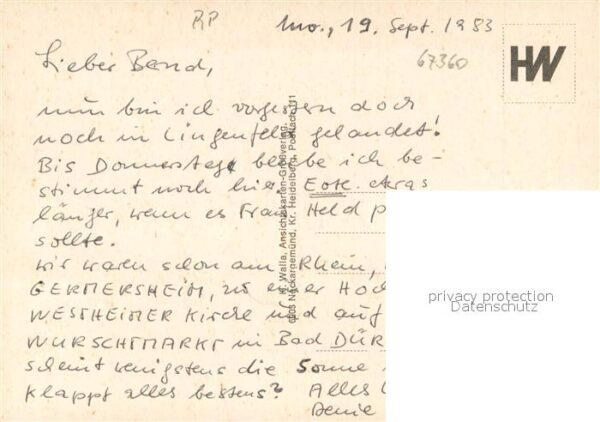 RP
Mo., 19. Sept. 1983
67360
HW
Lieber Bernd,
nun bin ich vorgestern doch
noch in Lingenfeld gelandet!
Bis Donnerstag bleibe ich be-
stimmt noch hier. Evtl. etwas
länger, wenn es Frau Held p
sollte.
Wir waren schon am Rhein,
GERMERSHEIM, zu einer Hoch
WESTHEIMER Kirche und auf
WURSCHTMARKT in Bad DÜR
scheint wenigstens die Sonne
Klappt alles bestens? Alles
Deine
W. Walla, Ansichtskarten-Großverlag,
6903 Neckargemünd, Kr. Heidelberg, Postfach 111
privacy protection
Datenschutz